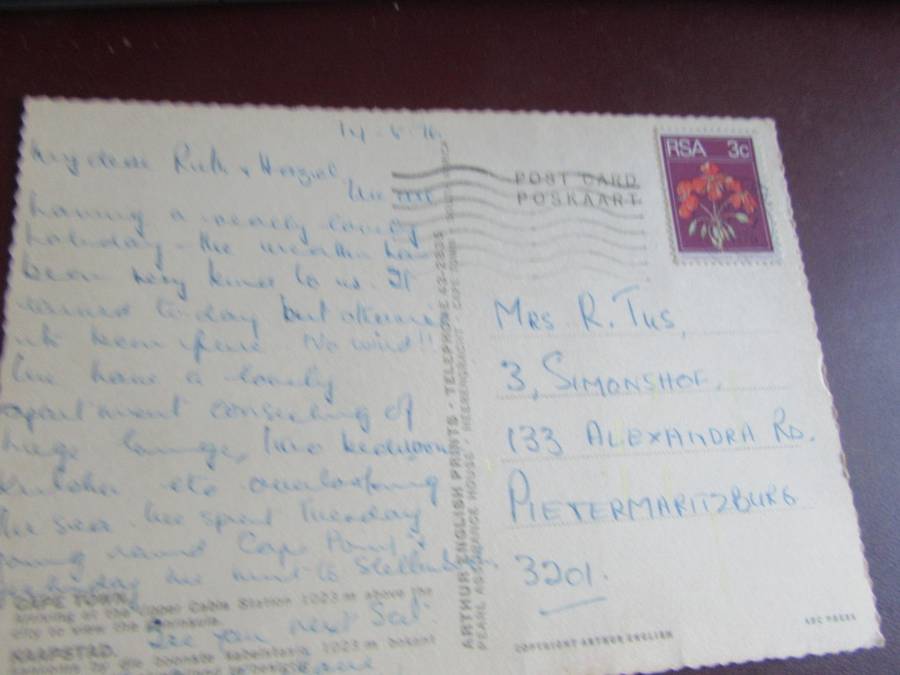 14-5-76
My dear Ruth & Herzrel,
We are
having a really lovely
holiday - the weather has
been very kind to us. It
rained to-day but otherwise
its been fine. No wind!!
We have a lovely
apartment consisting of
huge lounge, two bedrooms
kitchen etc overlooking
the sea. We spent Tuesday
going round Cape Point &
yesterday we went to Stellenbosch.
See you next Sat.
POST CARD
POSKAART
RSA 3c
MRS R. TUS,
3, SIMONSHOF,
133 ALEXANDRA RD.
PIETERMARITZBURG
3201.
ARTHUR ENGLISH PRINTS · TELEPHONE 43-2835
PEARL ASSURANCE HOUSE · HEERENGRACHT · CAPE TOWN
CAPE TOWN.
of the Upper Cable Station 1023 m above the
city to view the Peninsula.
KAAPSTAD.
1023 m bokant
COPYRIGHT ARTHUR ENGLISH
ABC PRESS